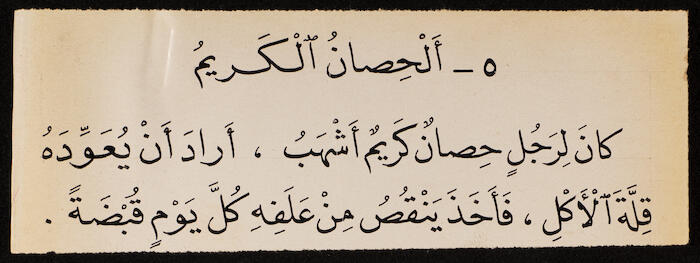 ٥ - أَلْحِصانُ ٱلْكَريمُ
كانَ لِرَجُلٍ حِصانٌ كَريمٌ أَشْهَبُ ، أَرادَ أَنْ يُعَوِّدَهُ
قِلَّةَ ٱلْأَكْلِ ، فَأَخَذَ يَنْقُصُ مِنْ عَلَفِهِ كُلَّ يَوْمٍ قُبْضَةً .